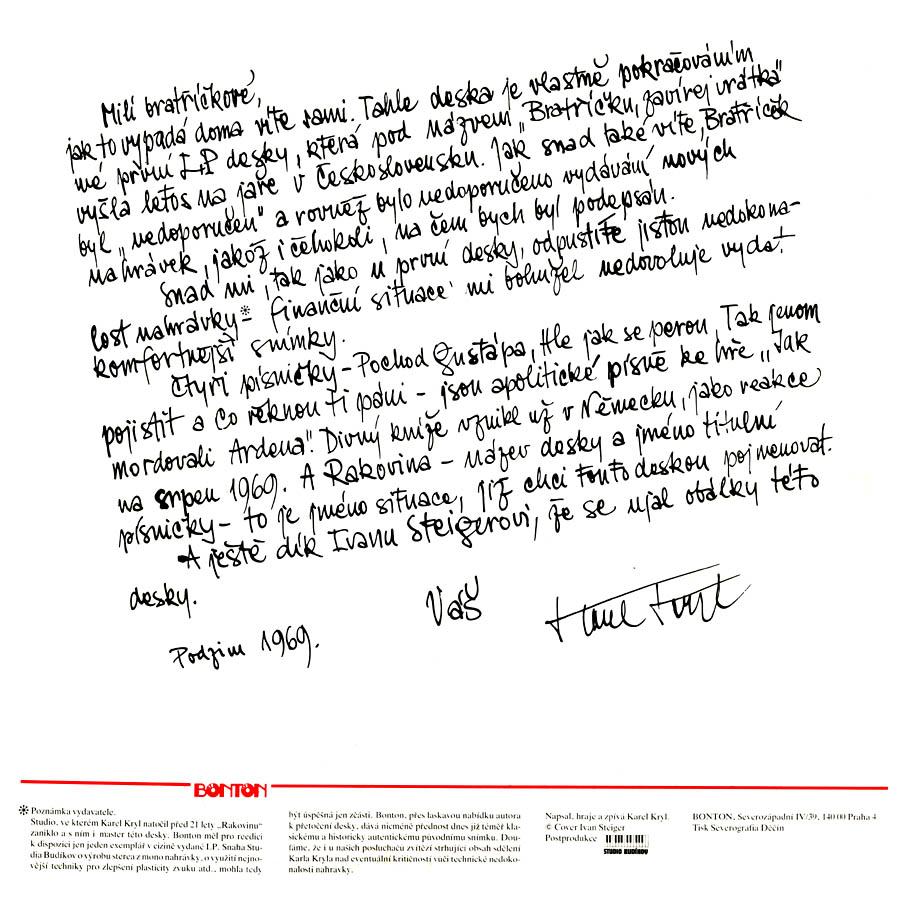 Milí bratříčkové,
jak to vypadá doma víte sami. Tahle deska je vlastně pokračováním
mé první LP desky, která pod názvem „Bratříčku, zavírej vrátka"
vyšla letos na jaře v Československu. Jak snad také víte, Bratříček
byl „nedoporučen" a rovněž bylo nedoporučeno vydávání nových
nahrávek, jakož i čehokoli, na čem bych byl podepsán.
Snad mi, tak jako u první desky, odpustíte jistou nedokona-
lost nahrávky* - finanční situace mi bohužel nedovoluje vydat
komfortnejší snímky.
Čtyři písničky - Pochod Gustápa, Hle jak se perou, Tak jenom
pojistit a Co řeknou ti páni - jsou apolitické písně ke hře „Jak
mordovali Ardena". Divný kníže vznikl už v Německu, jako reakce
na srpen 1969. A Rakovina - název desky a jméno titulní
písničky - to je jméno situace, jíž chci touto deskou pojmenovat.
A ještě dík Ivanu Steigerovi, že se ujal obálky této
desky.
Váš Karel Kryl
Podzim 1969.
BONTON
* Poznámka vydavatele.
Studio, ve kterém Karel Kryl natočil před 21 lety „Rakovinu"
zaniklo a s ním i master této desky. Bonton měl pro reedici
k dispozici jen jeden exemplář v cizině vydané LP. Snaha Stu-
dia Budíkov o výrobu stereo z mono nahrávky, o využití nejno-
vější techniky pro zlepšení plasticity zvuku atd., mohla tedy
být úspěšná jen zčásti. Bonton, přes laskavou nabídku autora
k přetočení desky, dává nicméně přednost dnes již téměř kla-
sickému a historicky autentickému původnímu snímku. Dou-
fáme, že i u našich posluchačů zvítězí strhující obsah sdělení
Karla Kryla nad eventuální kritičností vůči technické nedoko-
nalosti nahrávky.
Napsal, hraje a zpívá Karel Kryl.
© Cover Ivan Steiger
Postprodukce
STUDIO BUDÍKOV
BONTON, Severozápadní IV/39, 140 00 Praha 4
Tisk Severografia Děčín